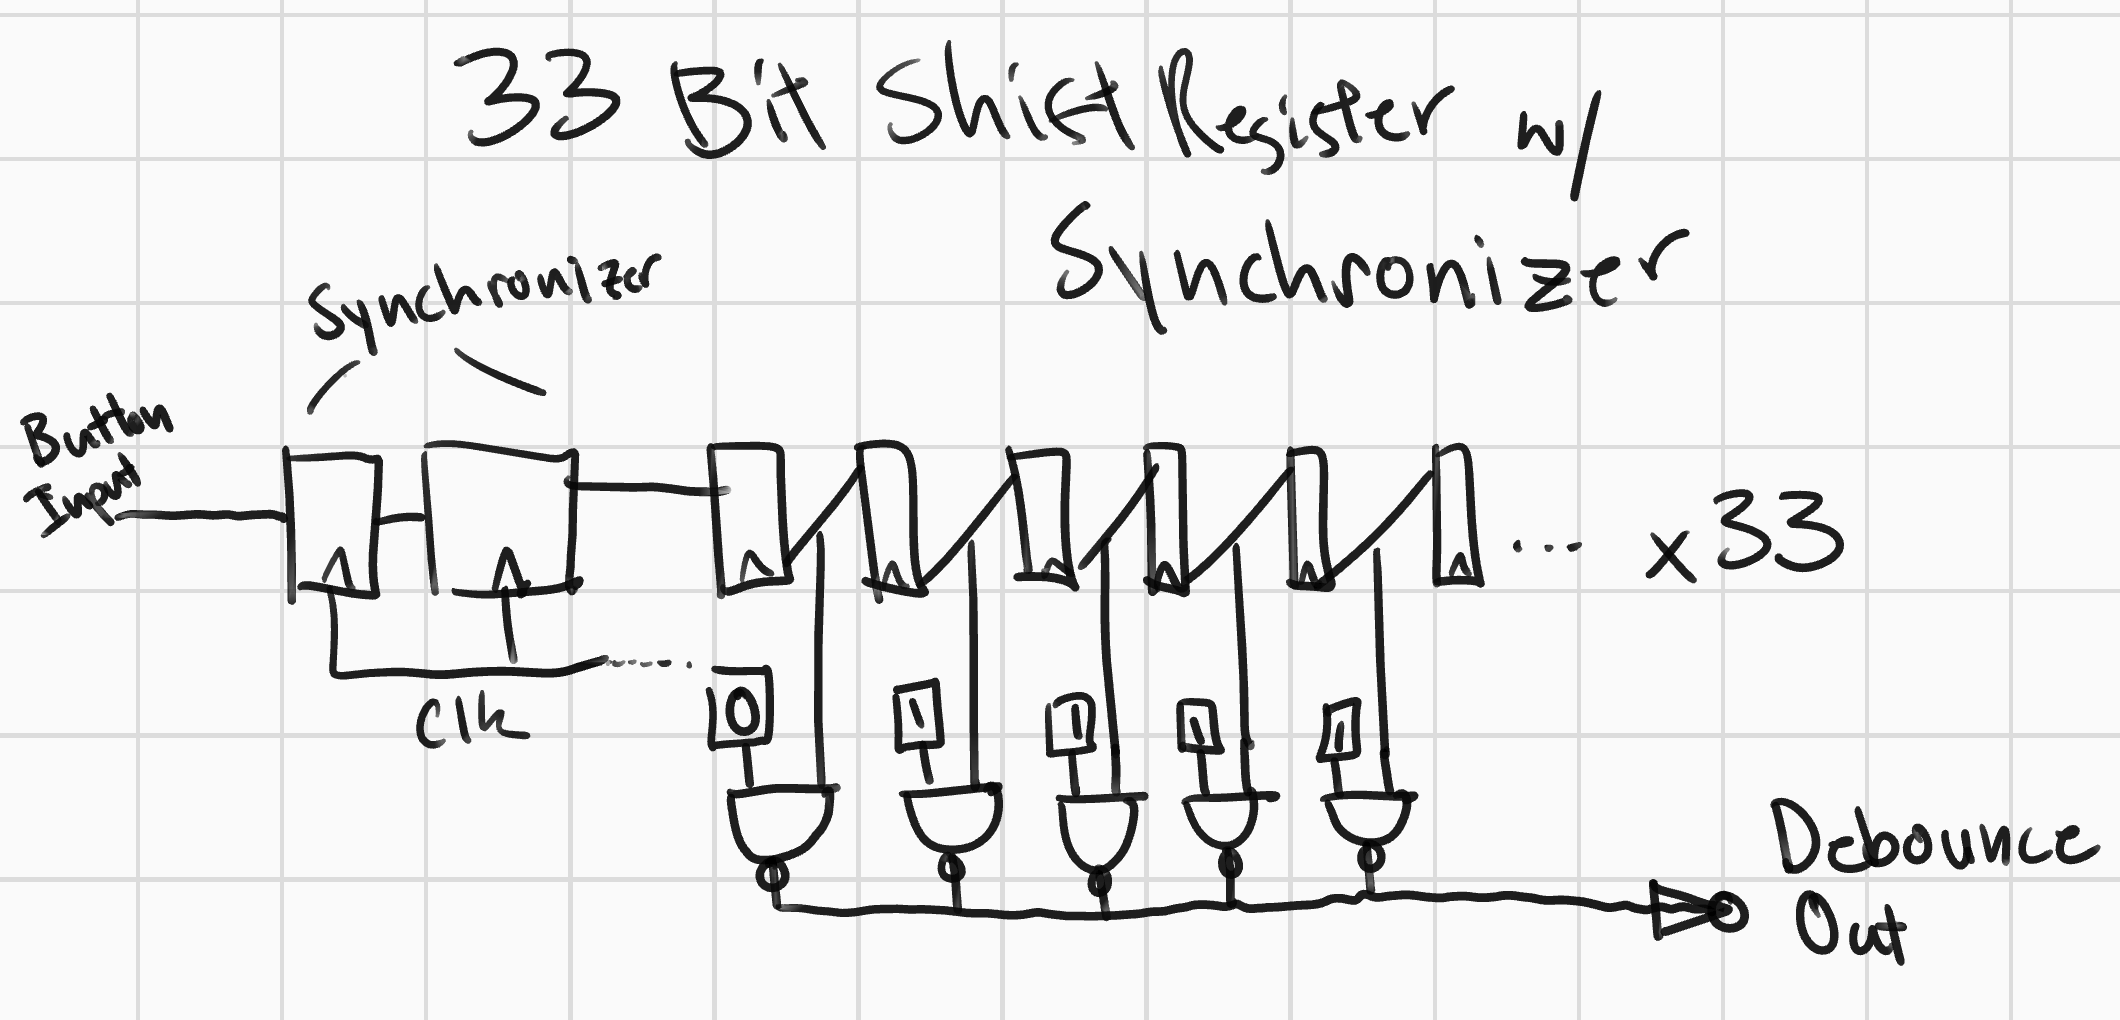 33 Bit Shift Register w/
Synchronizer
Synchronizer
Button
Input
... x33
Clk
0 1 1 1 1
Debounce
Out